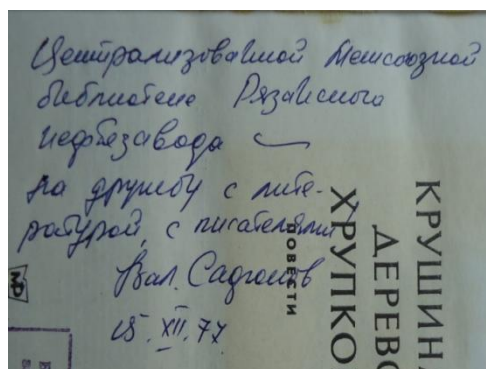 Централизованной межсоюзной
библиотеке Рязанского
нефтезавода —
на дружбу с лите-
ратурой, с писателями
Вал. Сафонов
15.XII.77
КРУШИНА
ДЕРЕВО
ХРУПКО
ПОВЕСТИ